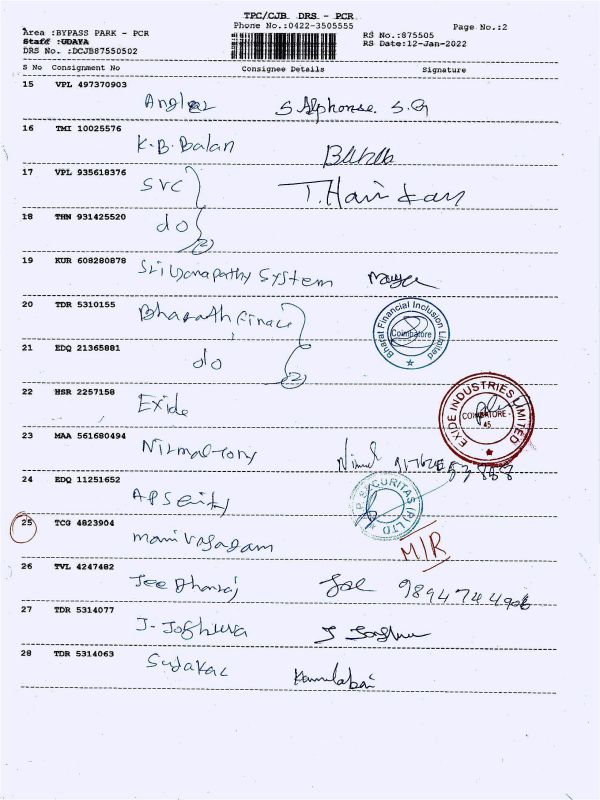 TPC/CJB DRS - PCR
Area :BYPASS PARK - PCR
Phone No.:0422-3505555
Page No.:2
Staff :UDAYA
RS No.:875505
DRS No. :DCJB87550502
RS Date:12-Jan-2022
S No Consignment No Consignee Details Signature
15 VPL 497370903
S Alphonse. S.G
16 TMI 10025576
K.B. Balan
17 VPL 935618376
SVC T. Hari
18 THN 931425520
do (2)
19 KUR 608280878
System
20 TDR 5310155
Bharath
Bharat Financial Inclusion Limited
Coimbatore
21 EDQ 21365881
do (2)
22 HSR 2257158
Exide
EXIDE INDUSTRIES LIMITED
COIMBATORE -
45
23 MAA 561680494
Nirmal
24 EDQ 11251652
SECURITAS (P) LTD
25 TCG 4823904
Manivasagam M/R
26 TVL 4247482
Jee
27 TDR 5314077
28 TDR 5314063
Sudakar